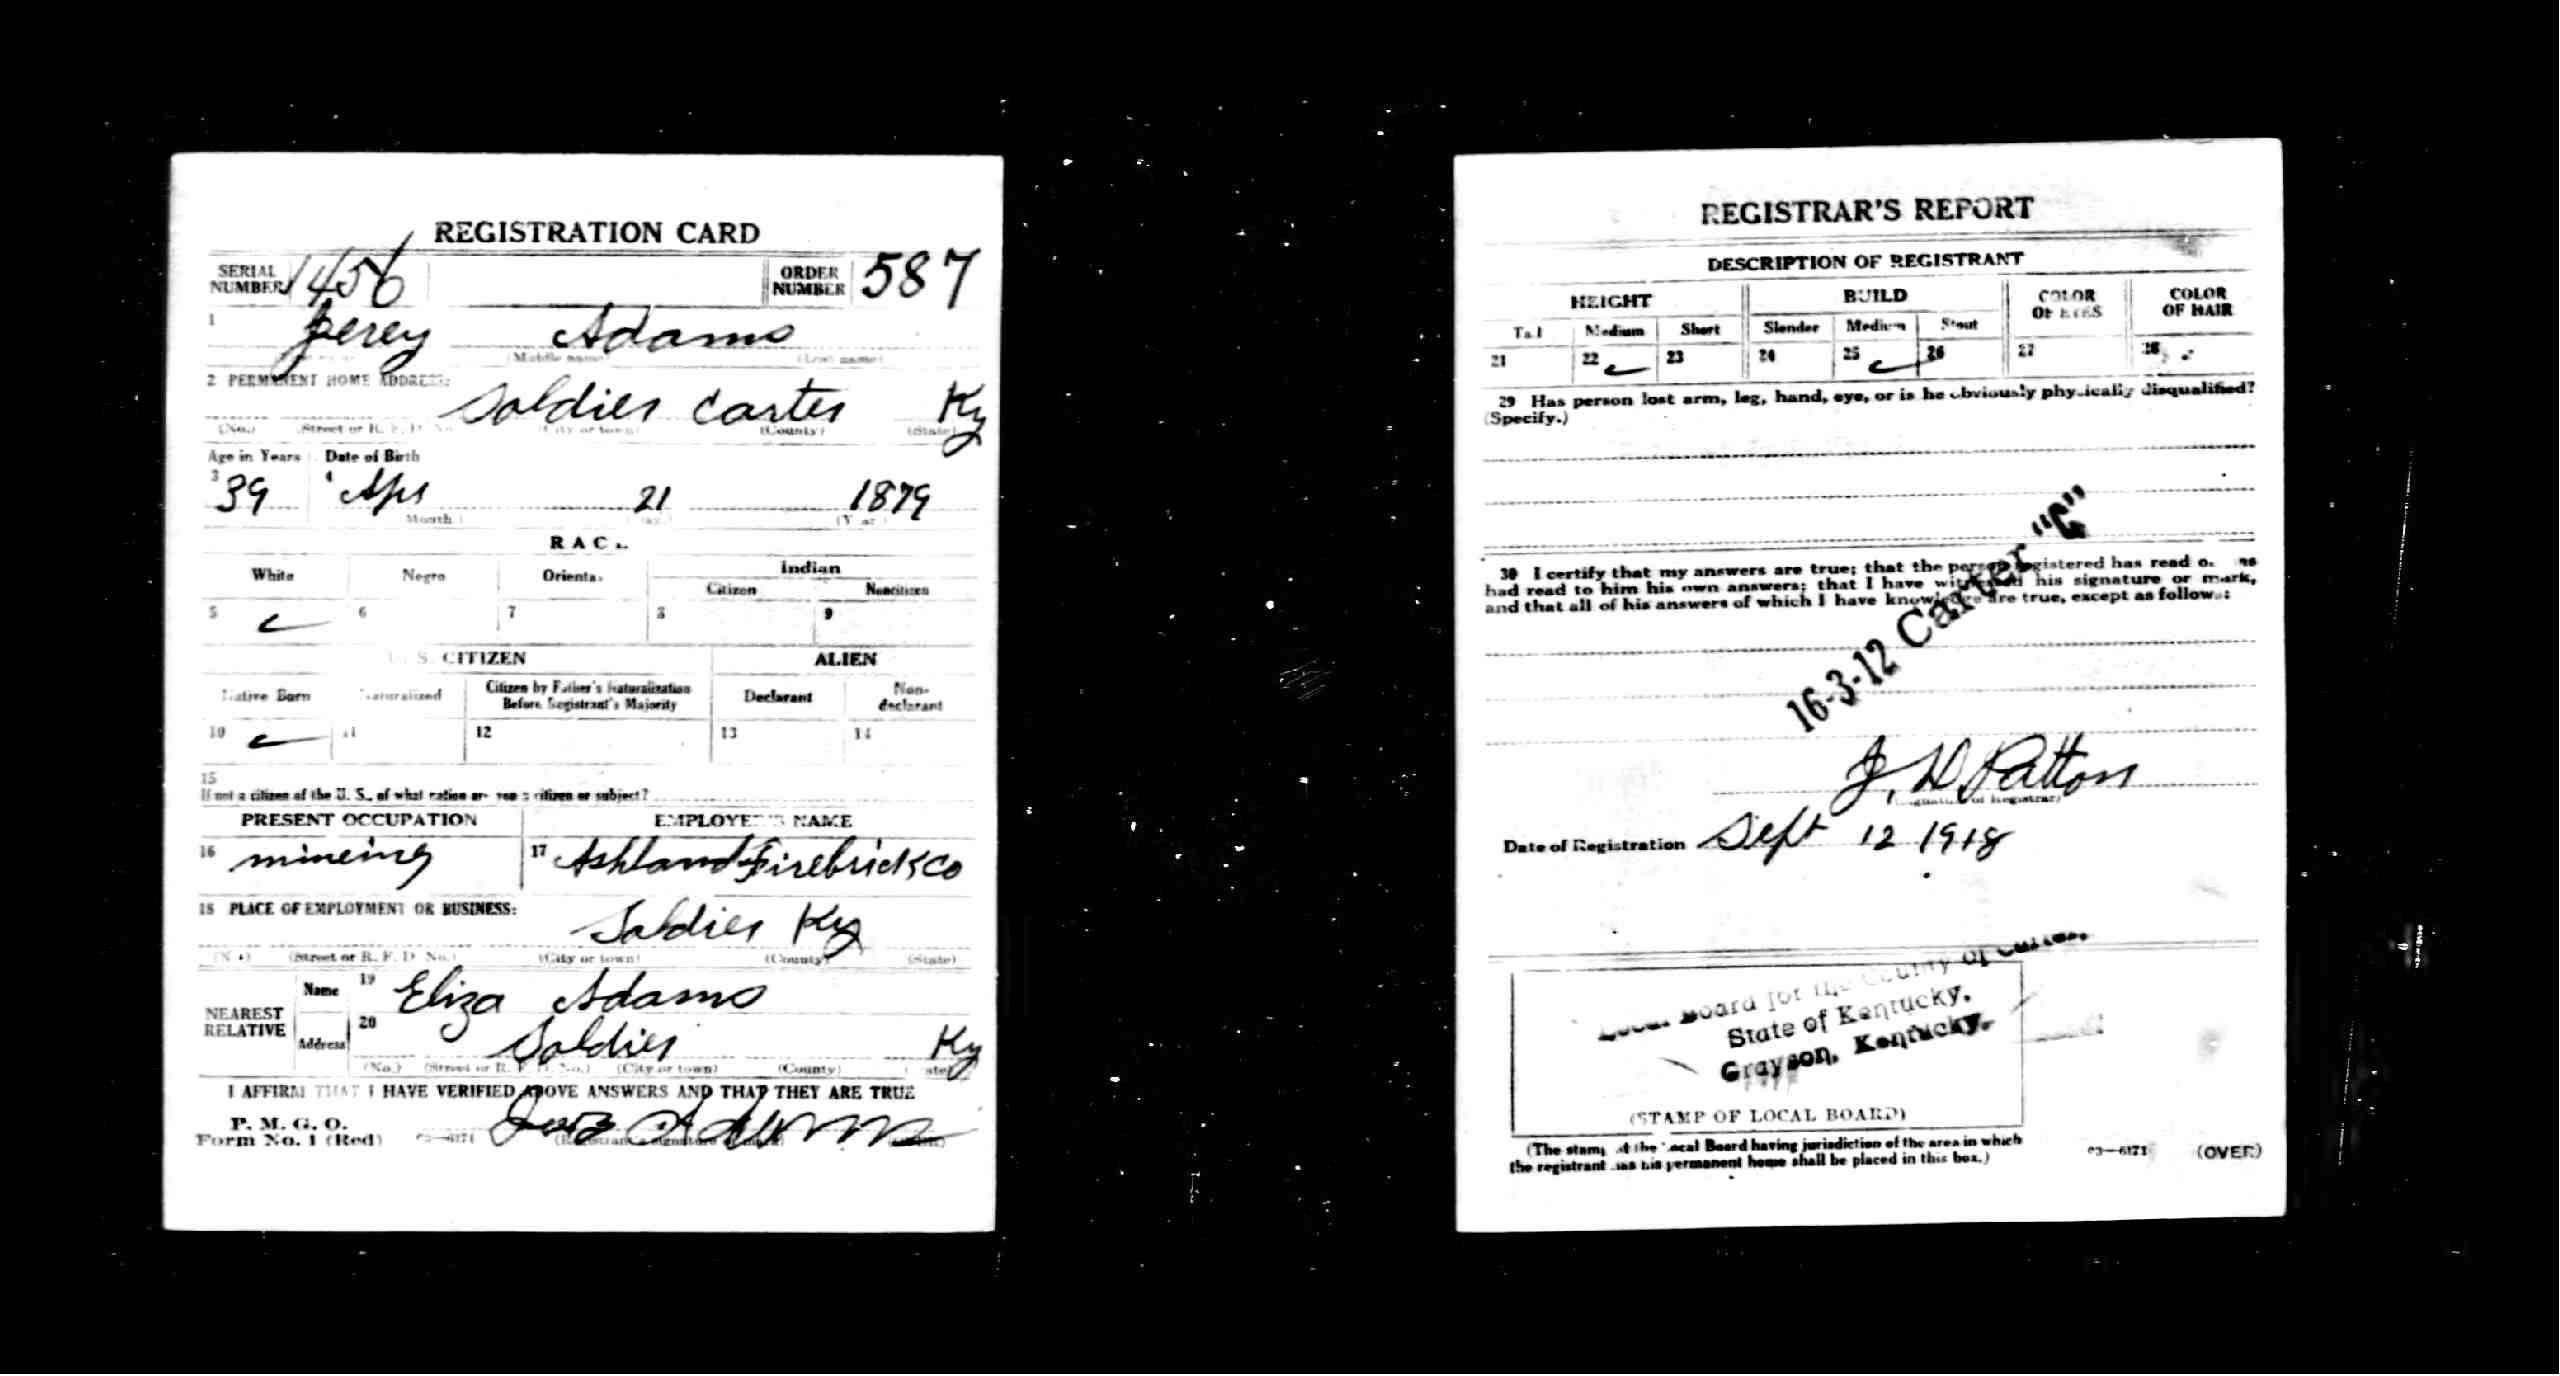 REGISTRATION CARD
SERIAL NUMBER 1456 ORDER NUMBER 587
1 Jerey Adams
(Middle name) (Last name)
2 PERMANENT HOME ADDRESS:
Soldier Carter Ky
(No.) (Street or R. F. D. No.) (City or town) (County) (State)
Age in Years Date of Birth
3 39 4 Apr 21 1879
(Month.) (Day.) (Year.)
RACE
White Negro Oriental Indian
Citizen Noncitizen
5 6 7 8 9
U. S. CITIZEN ALIEN
Native Born Naturalized Citizen by Father's Naturalization Before Registrant's Majority Declarant Non-declarant
10 11 12 13 14
15
If not a citizen of the U. S., of what nation are you a citizen or subject?
PRESENT OCCUPATION EMPLOYER'S NAME
16 mineing 17 Ashland Firebrick Co
18 PLACE OF EMPLOYMENT OR BUSINESS:
Soldier Ky
(No.) (Street or R. F. D. No.) (City or town) (County) (State)
NEAREST RELATIVE Name 19 Eliza Adams
Address 20 Soldier Ky
(No.) (Street or R. F. D. No.) (City or town) (County) (State)
I AFFIRM THAT I HAVE VERIFIED ABOVE ANSWERS AND THAT THEY ARE TRUE
P. M. G. O.
Form No. 1 (Red) 03—6171 Adams
REGISTRAR'S REPORT
DESCRIPTION OF REGISTRANT
HEIGHT BUILD COLOR OF EYES COLOR OF HAIR
Tall Medium Short Slender Medium Stout
21 22 23 24 25 26 27 28
29 Has person lost arm, leg, hand, eye, or is he obviously physically disqualified?
(Specify.)
30 I certify that my answers are true; that the person registered has read or has
had read to him his own answers; that I have witnessed his signature or mark,
and that all of his answers of which I have knowledge are true, except as follows:
16-3-12 Carter "C"
J. D. Patton
(Signature of Registrar)
Date of Registration Sept 12 1918
Local Board for the County of Carter,
State of Kentucky,
Grayson, Kentucky.
(STAMP OF LOCAL BOARD)
(The stamp of the Local Board having jurisdiction of the area in which
the registrant has his permanent home shall be placed in this box.)
03—6171 (OVER)